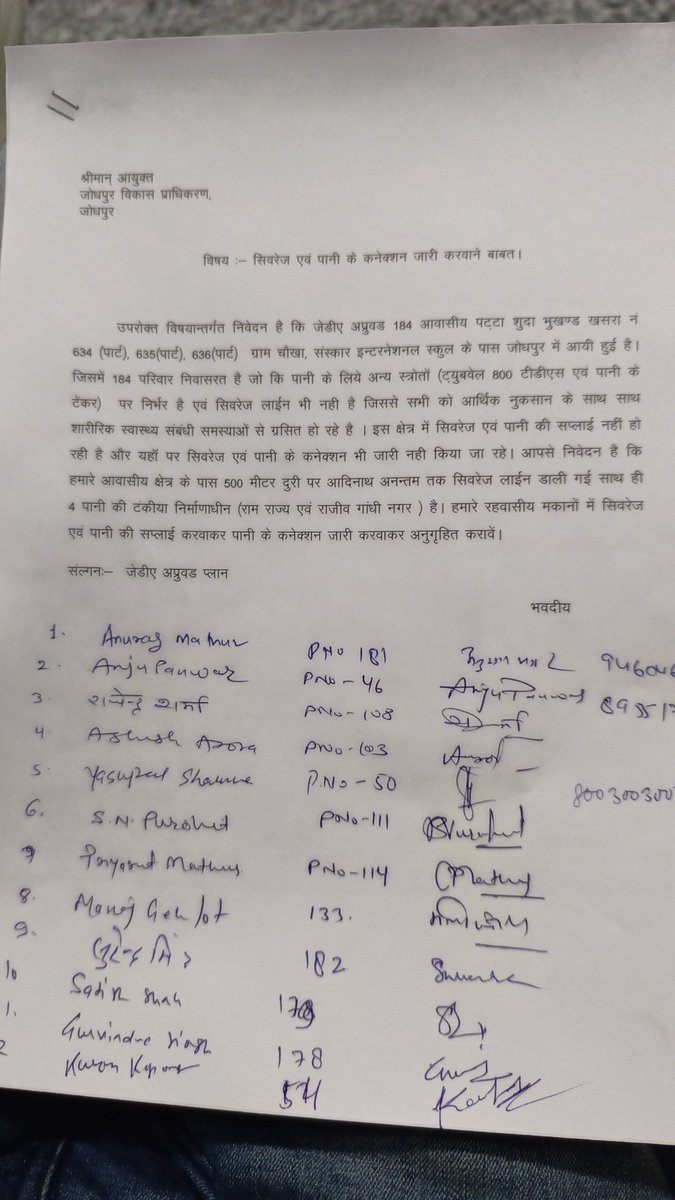 11
श्रीमान् आयुक्त
जोधपुर विकास प्राधिकरण,
जोधपुर
विषय :– सिवरेज एवं पानी के कनेक्शन जारी करवाने बाबत।
उपरोक्त विषयान्तर्गत निवेदन है कि जेडीए अप्रुवड 184 आवासीय पट्टा शुदा भुखण्ड खसरा नं
634 (पार्ट), 635(पार्ट), 636(पार्ट) ग्राम चौखा, संस्कार इन्टरनेशनल स्कुल के पास जोधपुर में आयी हुई है।
जिसमें 184 परिवार निवासरत है जो कि पानी के लिये अन्य स्त्रोतों (ट्युबवेल 800 टीडीएस एवं पानी के
टेंकर) पर निर्भर है एवं सिवरेज लाईन भी नही है जिससे सभी को आर्थिक नुकसान के साथ साथ
शारीरिक स्वास्थ्य संबंधी समस्याओं से ग्रसित हो रहे है । इस क्षेत्र में सिवरेज एवं पानी की सप्लाई नहीं हो
रही है और यहाँ पर सिवरेज एवं पानी के कनेक्शन भी जारी नही किया जा रहे। आपसे निवेदन है कि
हमारे आवासीय क्षेत्र के पास 500 मीटर दुरी पर आदिनाथ अनन्तम तक सिवरेज लाईन डाली गई साथ ही
4 पानी की टंकीया निर्माणाधीन (राम राज्य एवं राजीव गांधी नगर ) है। हमारे रहवासीय मकानों में सिवरेज
एवं पानी की सप्लाई करवाकर पानी के कनेक्शन जारी करवाकर अनुगृहित करावें।
संल्गनः– जेडीए अप्रुवड प्लान
भवदीय
1. Anurag Mathur PNO 181
2. Anju Panwar PNO-46 Anju Panwar
3 राजेन्द्र शर्मा PNO-108
4 Ashush Arora PNO-103
5. Yashpal Sharma P.NO-50
6. S.N. Purohit PNO-111 Purohit
7 Priyavrat Mathur PNO-114 Mathur
8. Manoj Gehlot 133.
9. 182
10 Satish Shah
1. Gurvindra Singh 178
2 Karan Kapoor